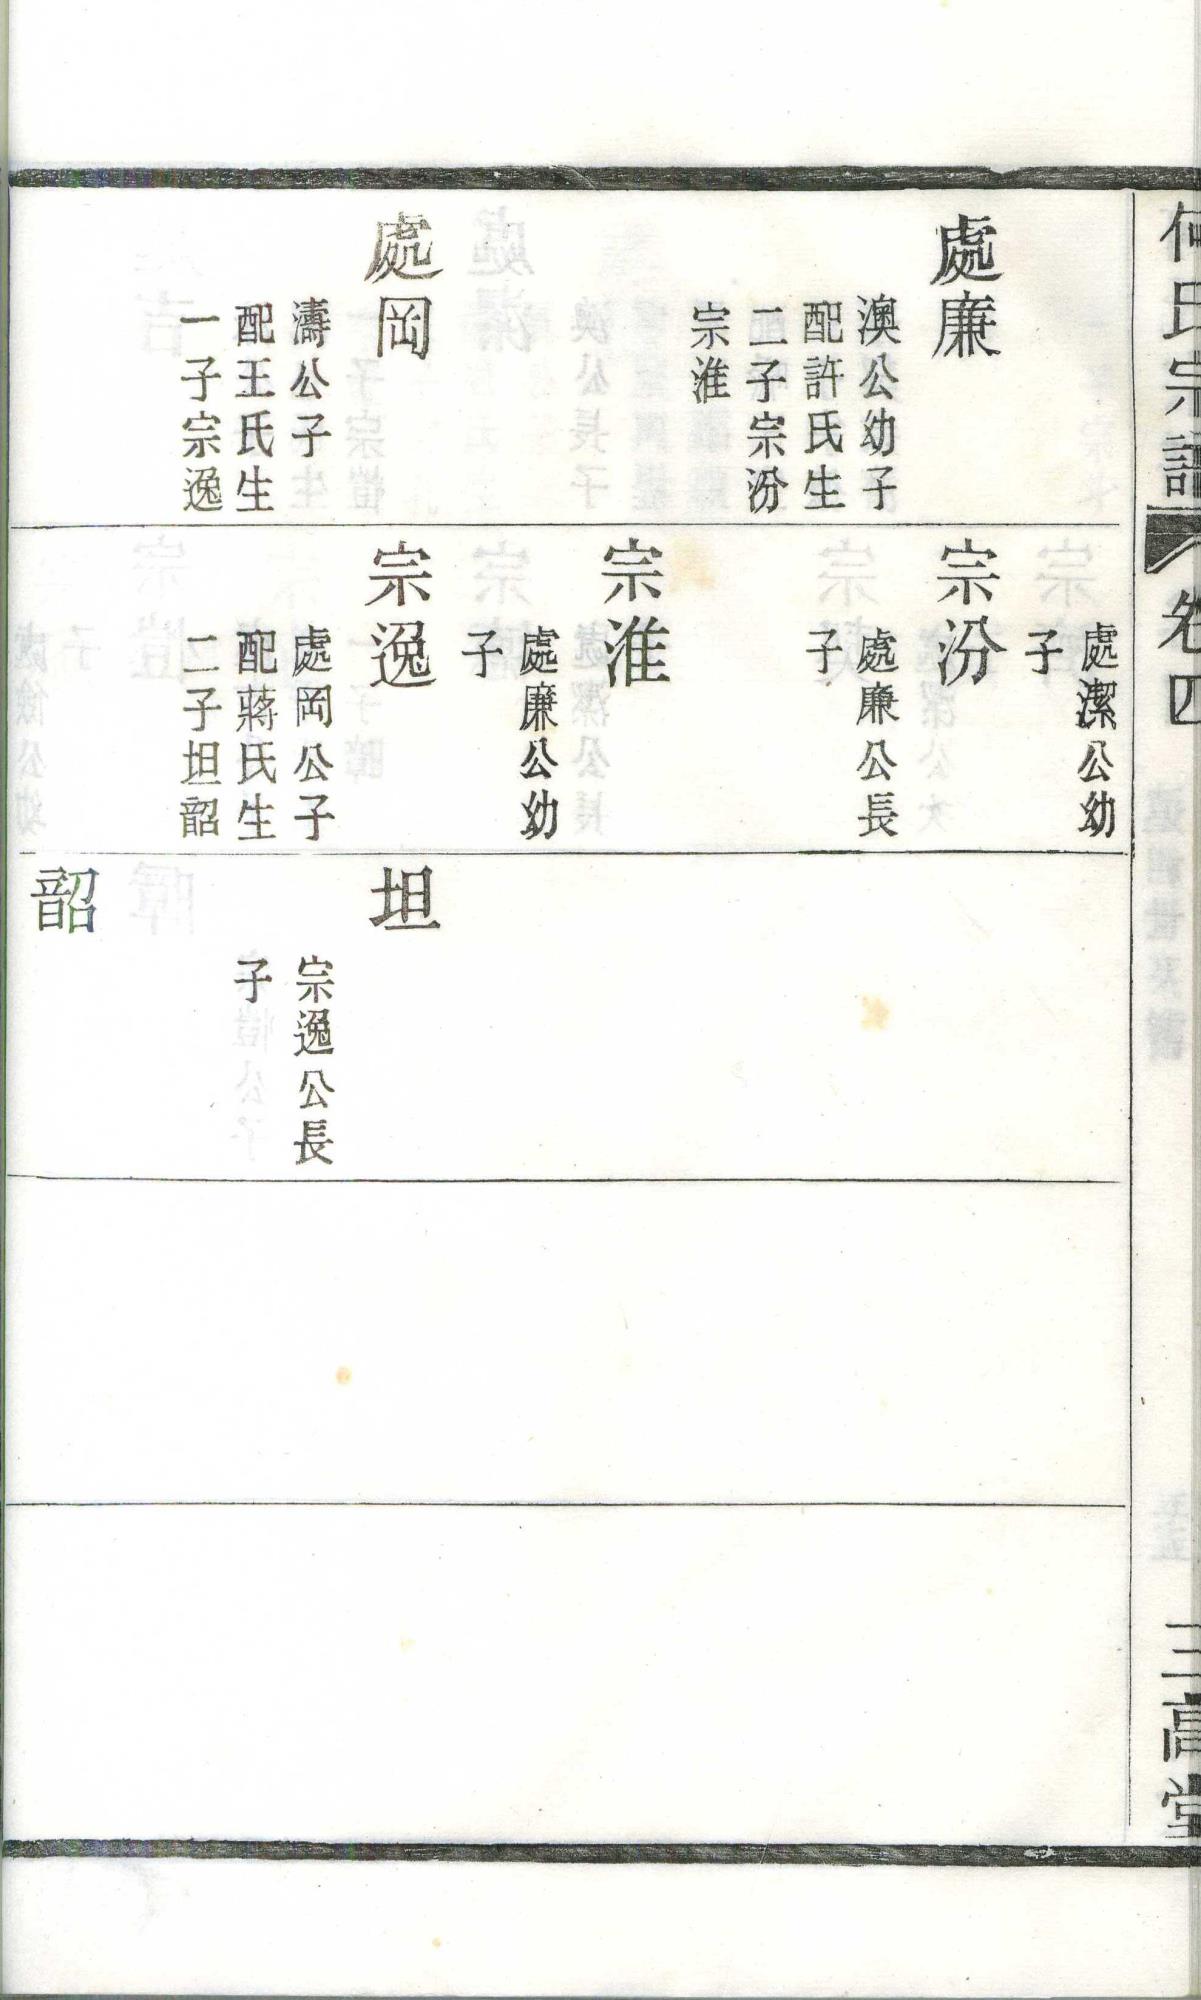 何氏宗譜
卷四
三高堂
處廉
澳公幼子
配許氏生
二子宗汾
宗淮
處岡
濤公子
配王氏生
一子宗逸
處潔公幼
子
宗汾
處廉公長
子
宗淮
處廉公幼
子
宗逸
處岡公子
配蔣氏生
二子坦韶
坦
宗逸公長
子
韶